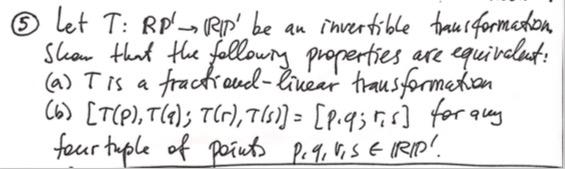 ⑤ Let T: RP¹ → RP¹ be an invertible transformation.
Show that the following properties are equivalent:
(a) T is a fractional-linear transformation
(b) [T(p), T(q); T(r), T(s)] = [p, q; r, s] for any
four tuple of points p, q, r, s ∈ RP¹.